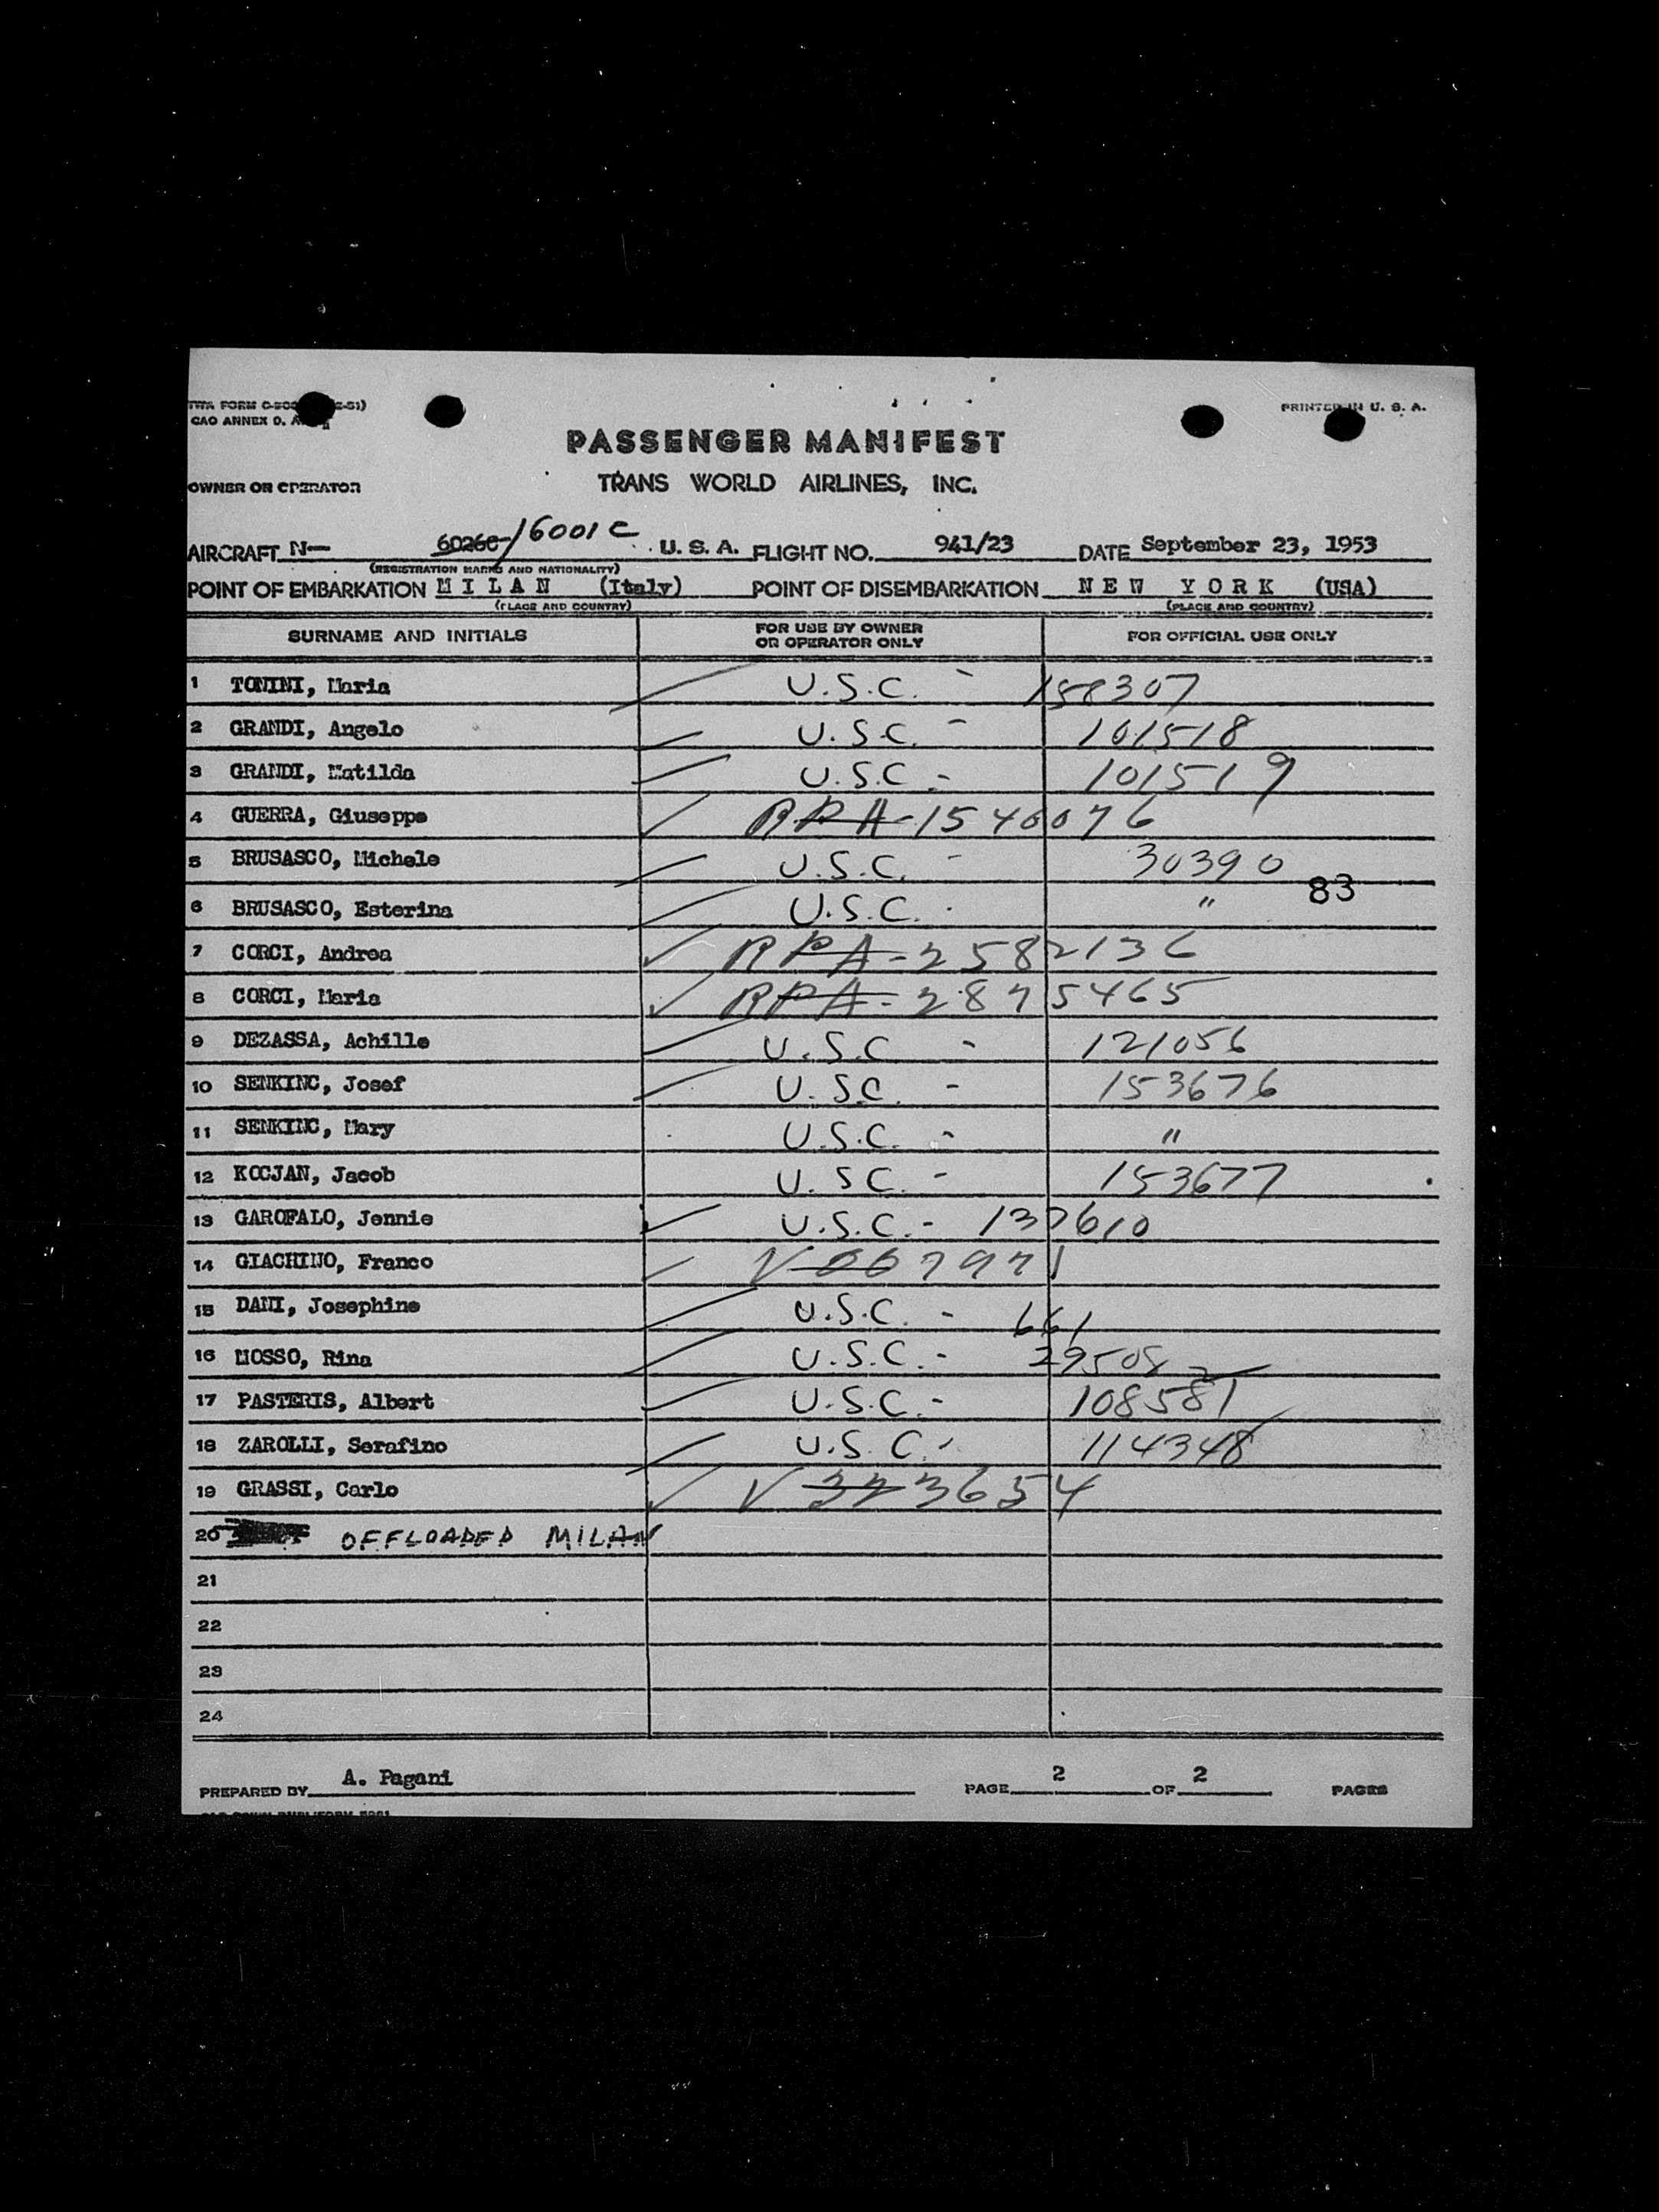 TWA FORM C-
CAO ANNEX D.
PRINTED IN U. S. A.
PASSENGER MANIFEST
OWNER OR OPERATOR
TRANS WORLD AIRLINES, INC.
AIRCRAFT N— 6026C/6001C U. S. A. FLIGHT NO. 941/23 DATE September 23, 1953
(REGISTRATION MARKS AND NATIONALITY)
POINT OF EMBARKATION M I L A N (Italy) POINT OF DISEMBARKATION N E W Y O R K (USA)
(PLACE AND COUNTRY) (PLACE AND COUNTRY)
SURNAME AND INITIALS FOR USE BY OWNER OR OPERATOR ONLY FOR OFFICIAL USE ONLY
1 TONINI, Maria U.S.C. - 158307
2 GRANDI, Angelo U.S.C. - 101518
3 GRANDI, Matilda U.S.C. - 101519
4 GUERRA, Giuseppe RPA-1540076
5 BRUSASCO, Michele U.S.C. - 30390
83
6 BRUSASCO, Esterina U.S.C. - "
7 CORCI, Andrea RPA-2582136
8 CORCI, Maria RPA-2875465
9 DEZASSA, Achille U.S.C. - 121056
10 SENKINC, Josef U.S.C. - 153676
11 SENKINC, Mary U.S.C. - "
12 KOCJAN, Jacob U.S.C. - 153677
13 GAROFALO, Jennie U.S.C. - 137610
14 GIACHINO, Franco
15 DANI, Josephine U.S.C. - 661
16 MOSSO, Rina U.S.C. - 29508
17 PASTERIS, Albert U.S.C. - 108581
18 ZAROLLI, Serafino U.S.C. - 114348
19 GRASSI, Carlo V323654
20 OFFLOADED MILAN
21
22
23
24
PREPARED BY A. Pagani PAGE 2 OF 2 PAGES